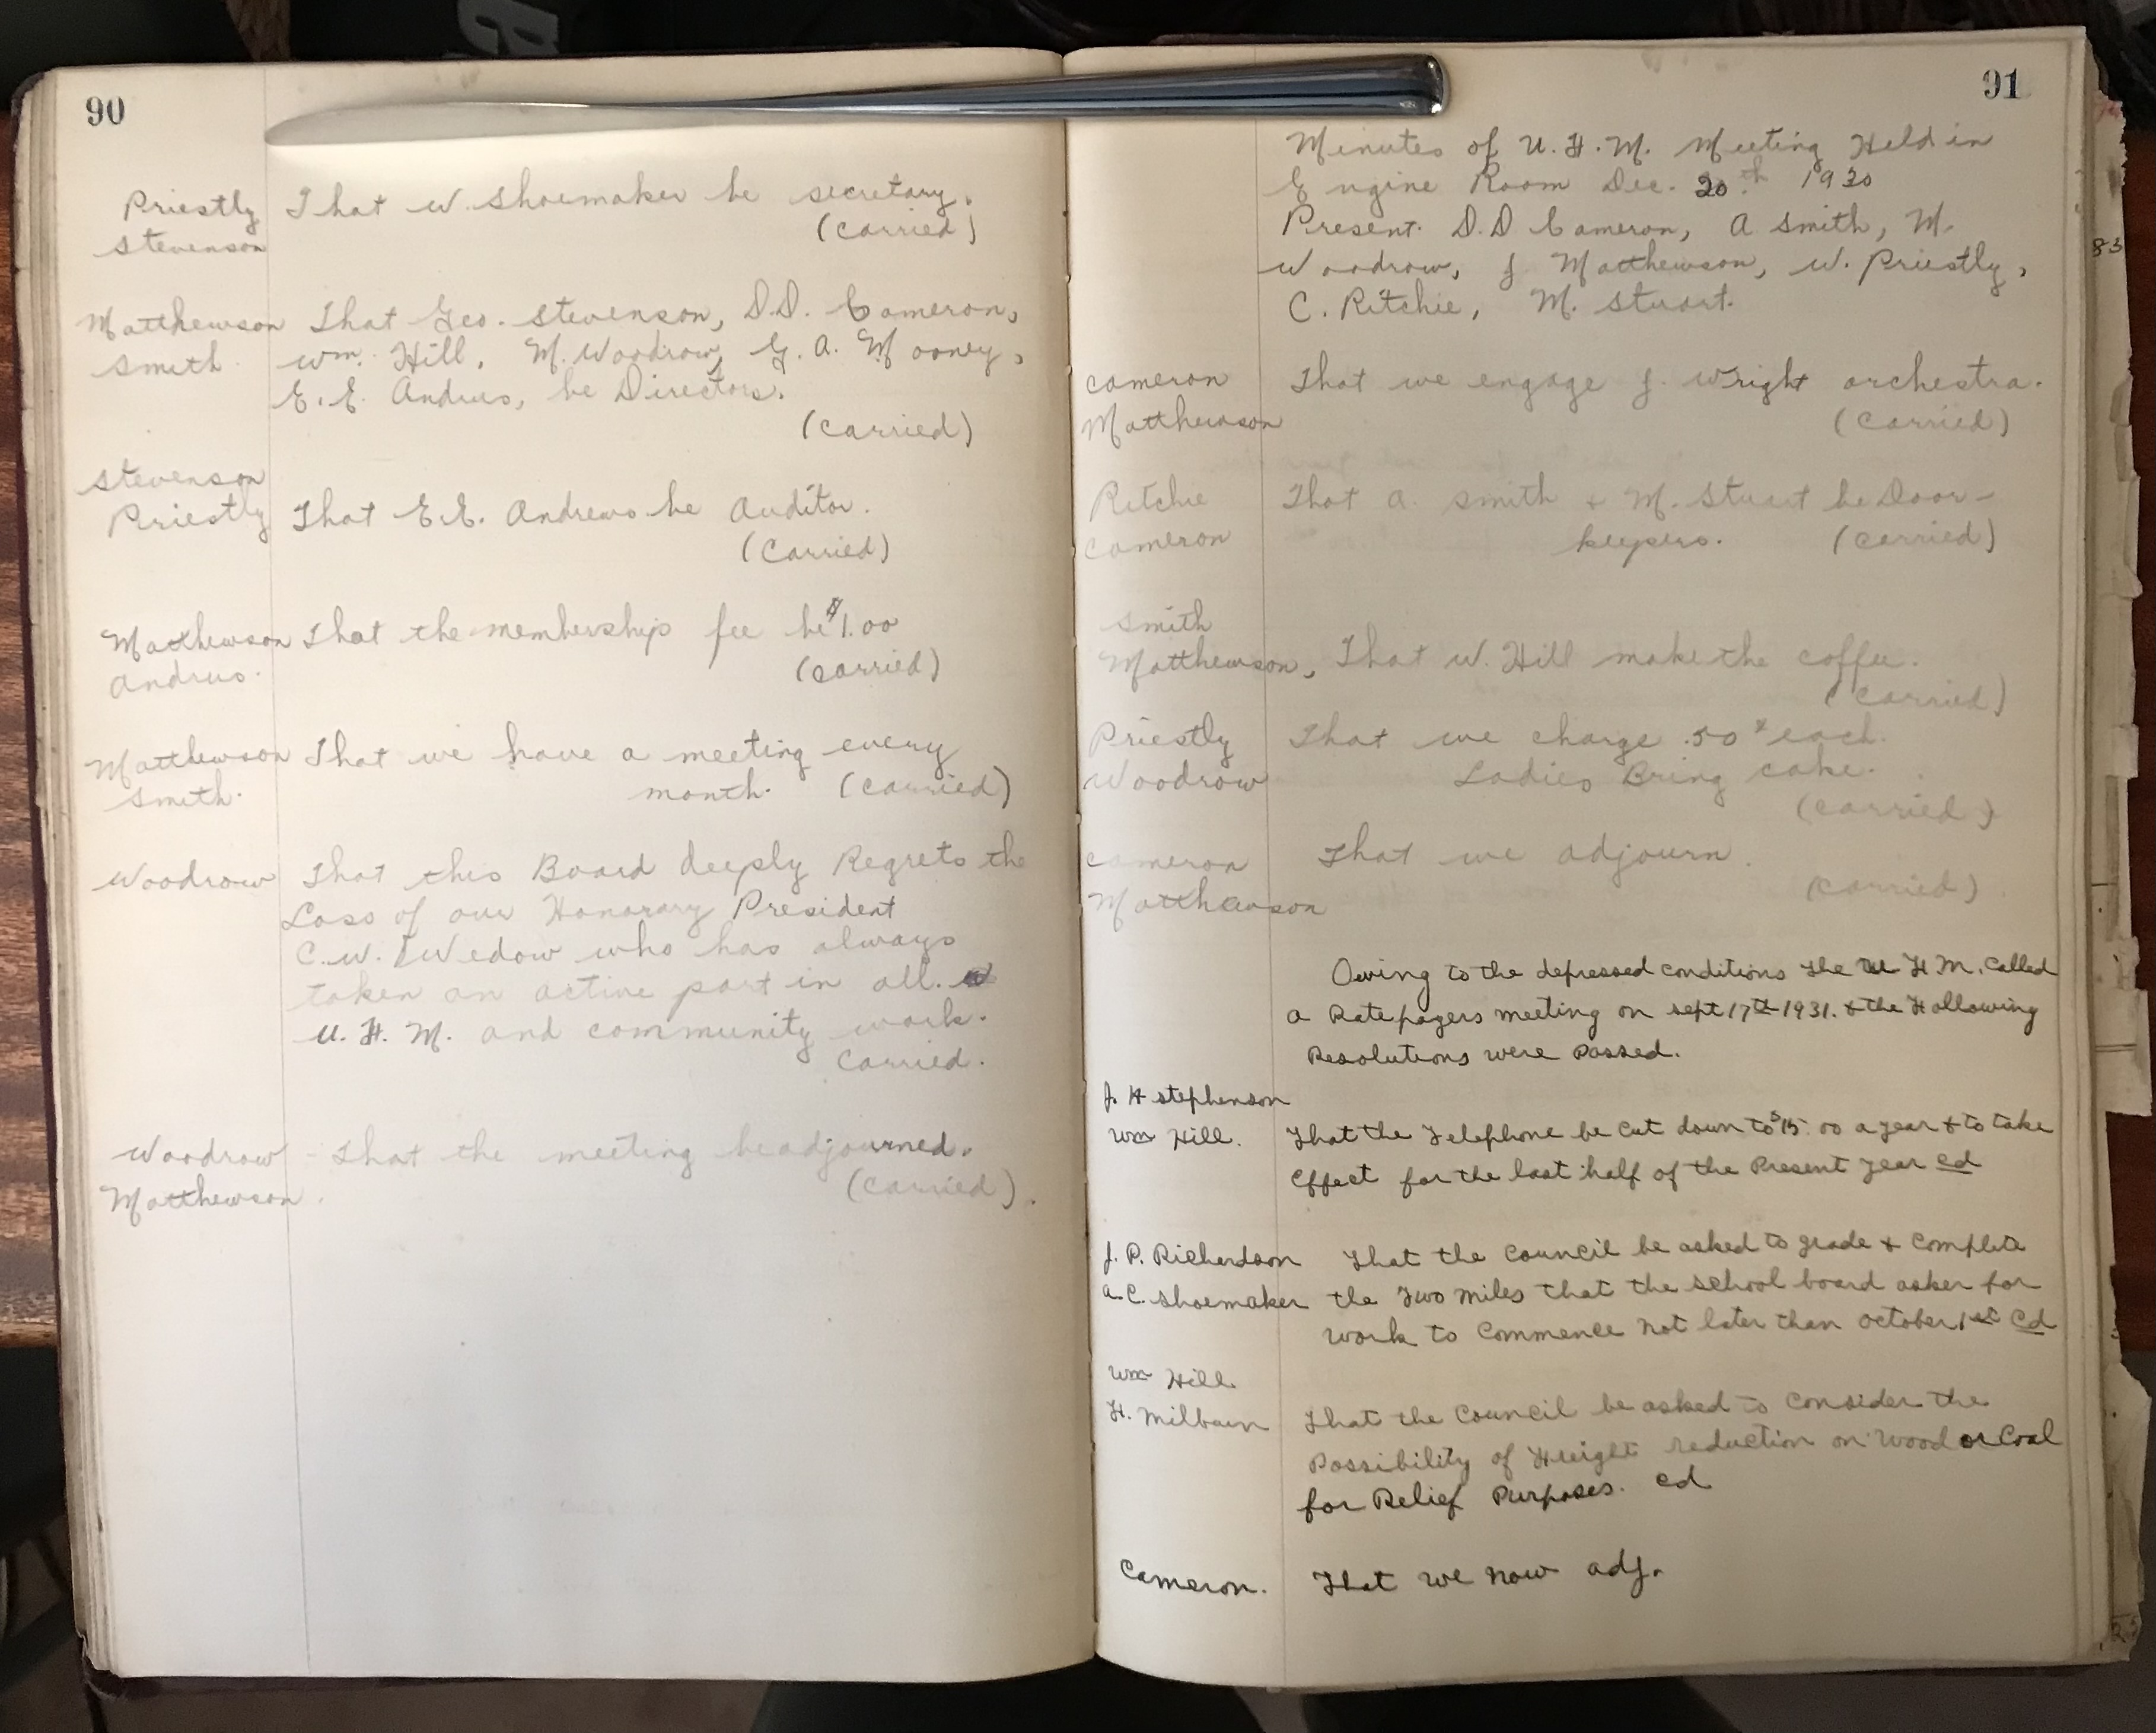 90
Priestly That W. Shoemaker be secretary.
Stevenson (Carried)
Matthewson That Geo. Stevenson, D.D. Cameron,
Smith. Wm. Hill, M. Woodrow, G. A. Mooney,
E. E. Andrus, be Directors.
(Carried)
Stevenson
Priestly That E.E. Andrews be Auditor.
(Carried)
Matthewson That the membership fee be $1.00
Andrus. (Carried)
Matthewson That we have a meeting every
Smith. month. (Carried)
Woodrow That this Board deeply Regrets the
Loss of our Honorary President
C. W. who has always
taken an active part in all.
U. F. M. and community work.
Carried.
Woodrow - That the meeting be adjourned.
Matthewson. (Carried).
91
Minutes of U. F. M. Meeting Held in
Engine Room Dec. 20th 1930
Present. D.D Cameron, A Smith, M.
Woodrow, J Matthewson, W. Priestly,
C. Ritchie, M. Stuart.
Cameron That we engage J. Wright orchestra.
Matthewson (Carried)
Ritchie That A. Smith & M. Stuart be Door-
Cameron keepers. (Carried)
Smith
Matthewson, That W. Hill make the coffee.
(Carried)
Priestly That we charge .50¢ each.
Woodrow Ladies Bring cake.
(Carried)
Cameron That we adjourn.
Matthewson (Carried)
Owing to the depressed conditions the U F M. called
a Ratepayers meeting on Sept 17th 1931. & the Following
Resolutions were Passed.
J. H Stephenson
Wm Hill. That the Telephone be cut down to $15.00 a year & to take
Effect for the last half of the Present year Cd
J. P. Richardson That the Council be asked to grade & Complete
A. C. Shoemaker the Two miles that the School board asker for
work to Commence Not later than October 1st Cd
Wm Hill.
H. Milburn That the Council be asked to Consider the
Possibility of Freight reduction on Wood or Coal
for Relief Purposes. Cd
Cameron. That we now adj.
83